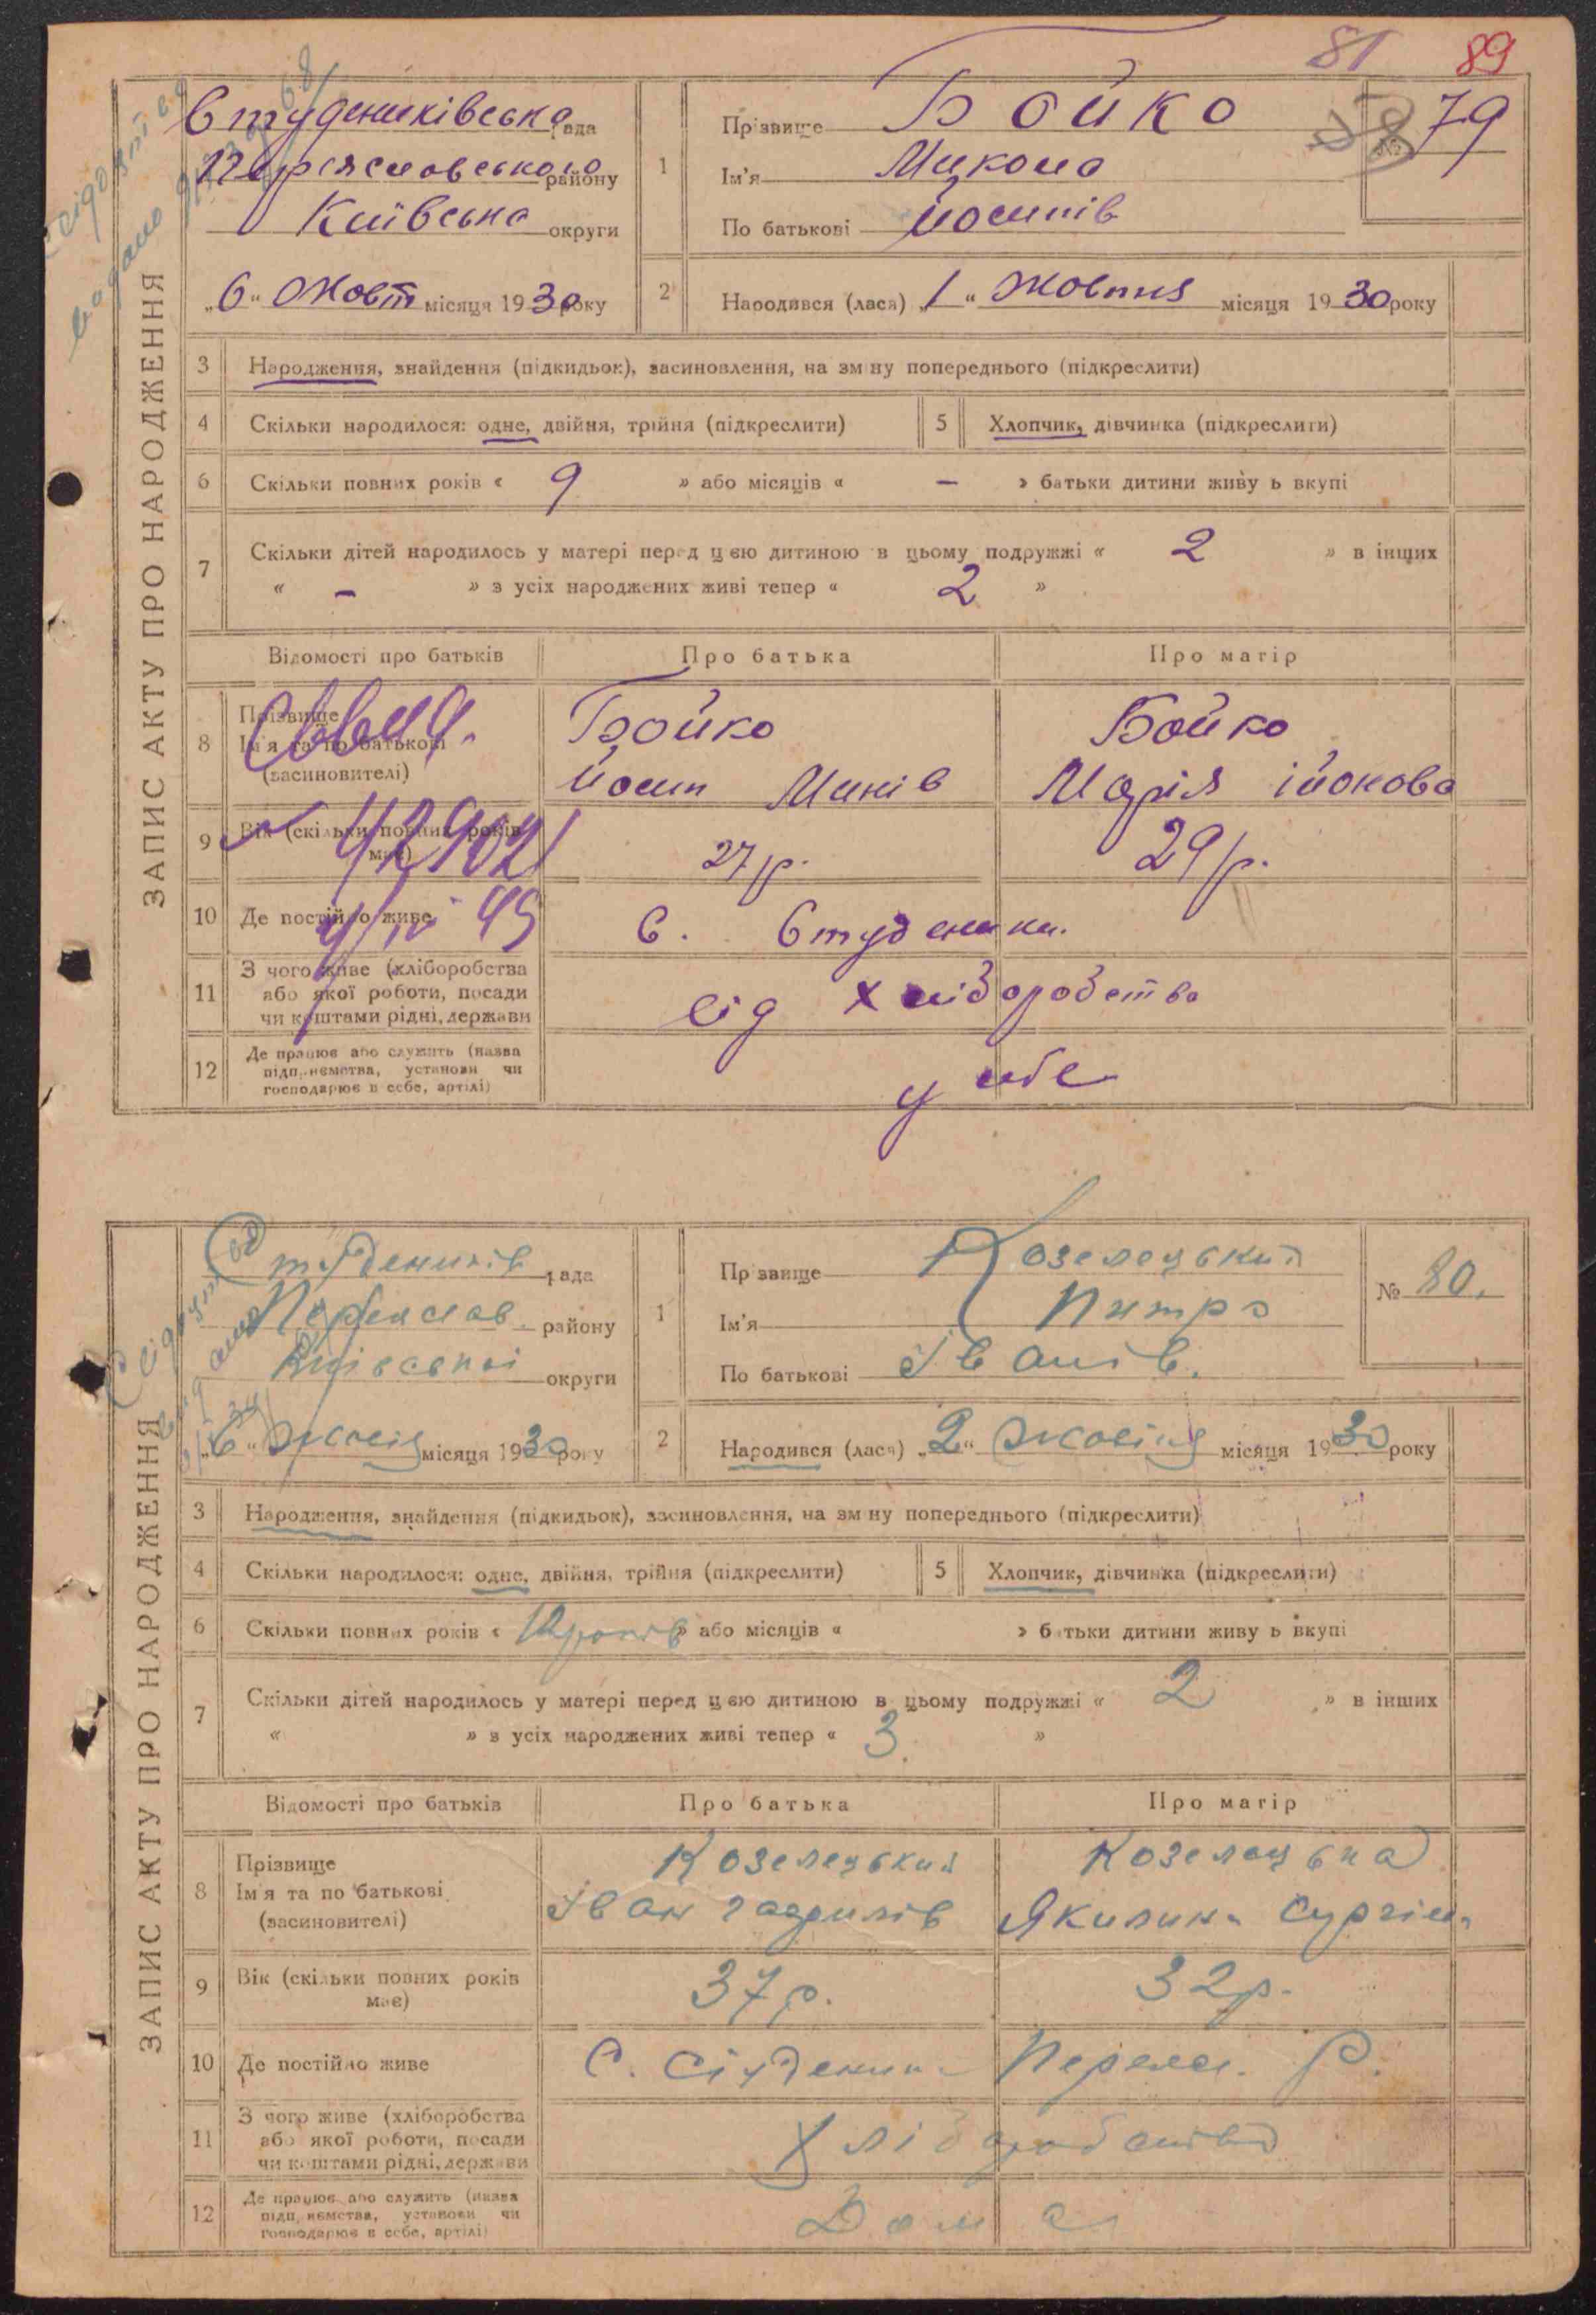 81 89
Студениківська рада
Переяславського району
Київська округи
„6“ Жовт місяця 1930 року
1
Прізвище Бойко
Ім'я Микола
По батькові Йосипів
№ 79
2
Народився (лася) „1“ жовтня місяця 1930 року
ЗАПИС АКТУ ПРО НАРОДЖЕННЯ
3 Народження, знайдення (підкидьок), засиновлення, на зміну попереднього (підкреслити)
4 Скільки народилося: одне, двійня, трійня (підкреслити)
5 Хлопчик, дівчинка (підкреслити)
6 Скільки повних років « 9 » або місяців « – » батьки дитини живуть вкупі
7 Скільки дітей народилось у матері перед цією дитиною в цьому подружжі « 2 » в інших
« – » з усіх народжених живі тепер « 2 »
Відомості про батьків
Про батька
Про матір
8 Прізвище
Ім'я та по батькові
(засиновителі)
Бойко
Йосип Минів
Бойко
Марія
9 Вік (скільки повних років
має)
27 р.
29 р.
10 Де постійно живе
с. Студеники.
11 З чого живе (хліборобства
або якої роботи, посади
чи коштами рідні, держави
від хліборобства
12 Де працює або служить (назва
підприємства, установи чи
господарює в себе, артілі)
у себе
Студеників рада
Переяслав. району
Київської округи
„6“ жовтня місяця 1930 року
1
Прізвище Козелецький
Ім'я Питро
По батькові Іванів.
№ 80.
2
Народився (лася) „2“ жовтня місяця 1930 року
ЗАПИС АКТУ ПРО НАРОДЖЕННЯ
3 Народження, знайдення (підкидьок), засиновлення, на зміну попереднього (підкреслити)
4 Скільки народилося: одне, двійня, трійня (підкреслити)
5 Хлопчик, дівчинка (підкреслити)
6 Скільки повних років « років » або місяців « » батьки дитини живуть вкупі
7 Скільки дітей народилось у матері перед цією дитиною в цьому подружжі « 2 » в інших
« » з усіх народжених живі тепер « 3 »
Відомості про батьків
Про батька
Про матір
8 Прізвище
Ім'я та по батькові
(засиновителі)
Козелецький
Іван Гаврилів
Козелецька
Якилина
9 Вік (скільки повних років
має)
37 р.
32 р.
10 Де постійно живе
с. Студеники Переяс. Р.
11 З чого живе (хліборобства
або якої роботи, посади
чи коштами рідні, держави
Хліборобство
12 Де працює або служить (назва
підприємства, установи чи
господарює в себе, артілі)
Дома